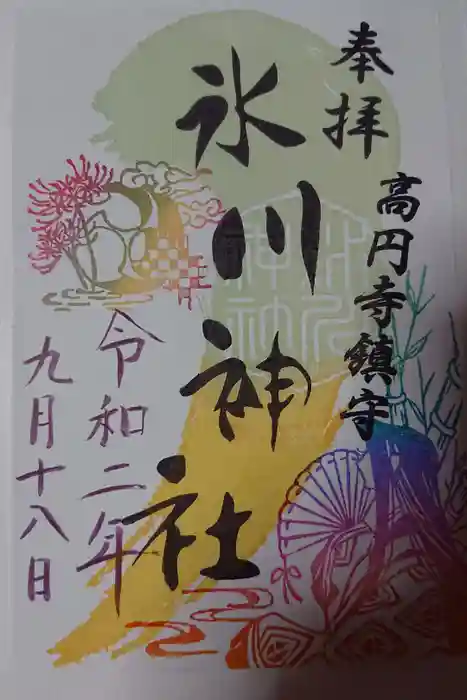 奉拝
高円寺鎮守
氷川神社
令和二年
九月十八日